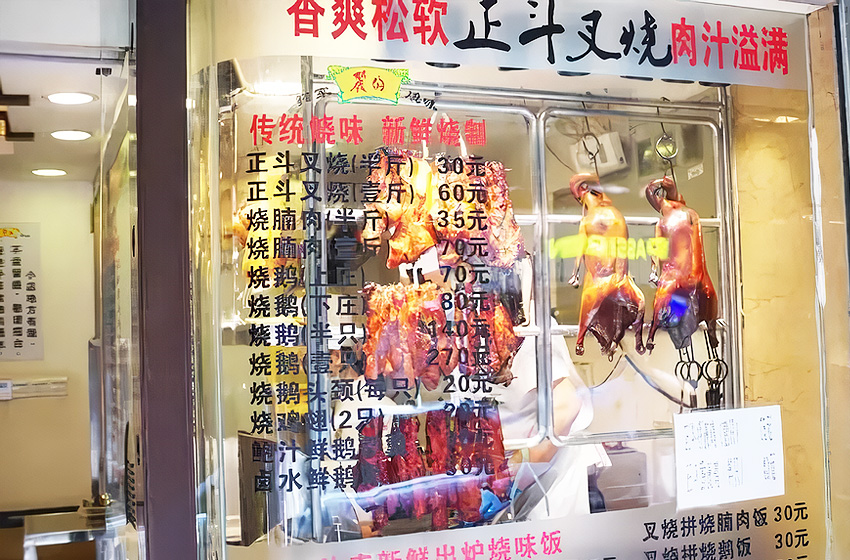 香爽松软 正斗叉烧 肉汁溢满
传统烧味 新鲜烧制
正斗叉烧(半斤) 30元
正斗叉烧(壹斤) 60元
烧腩肉(半斤) 35元
烧腩肉(壹斤) 70元
烧鹅(上庄) 70元
烧鹅(下庄) 80元
烧鹅(半只) 140元
烧鹅(壹只) 270元
烧鹅头颈(每只) 20元
烧鸡翅(2只)
鲍汁鲜鹅
卤水鲜鹅
新鲜出炉烧味饭
叉烧拼烧腩肉饭 30元
叉烧拼烧鹅饭 30元